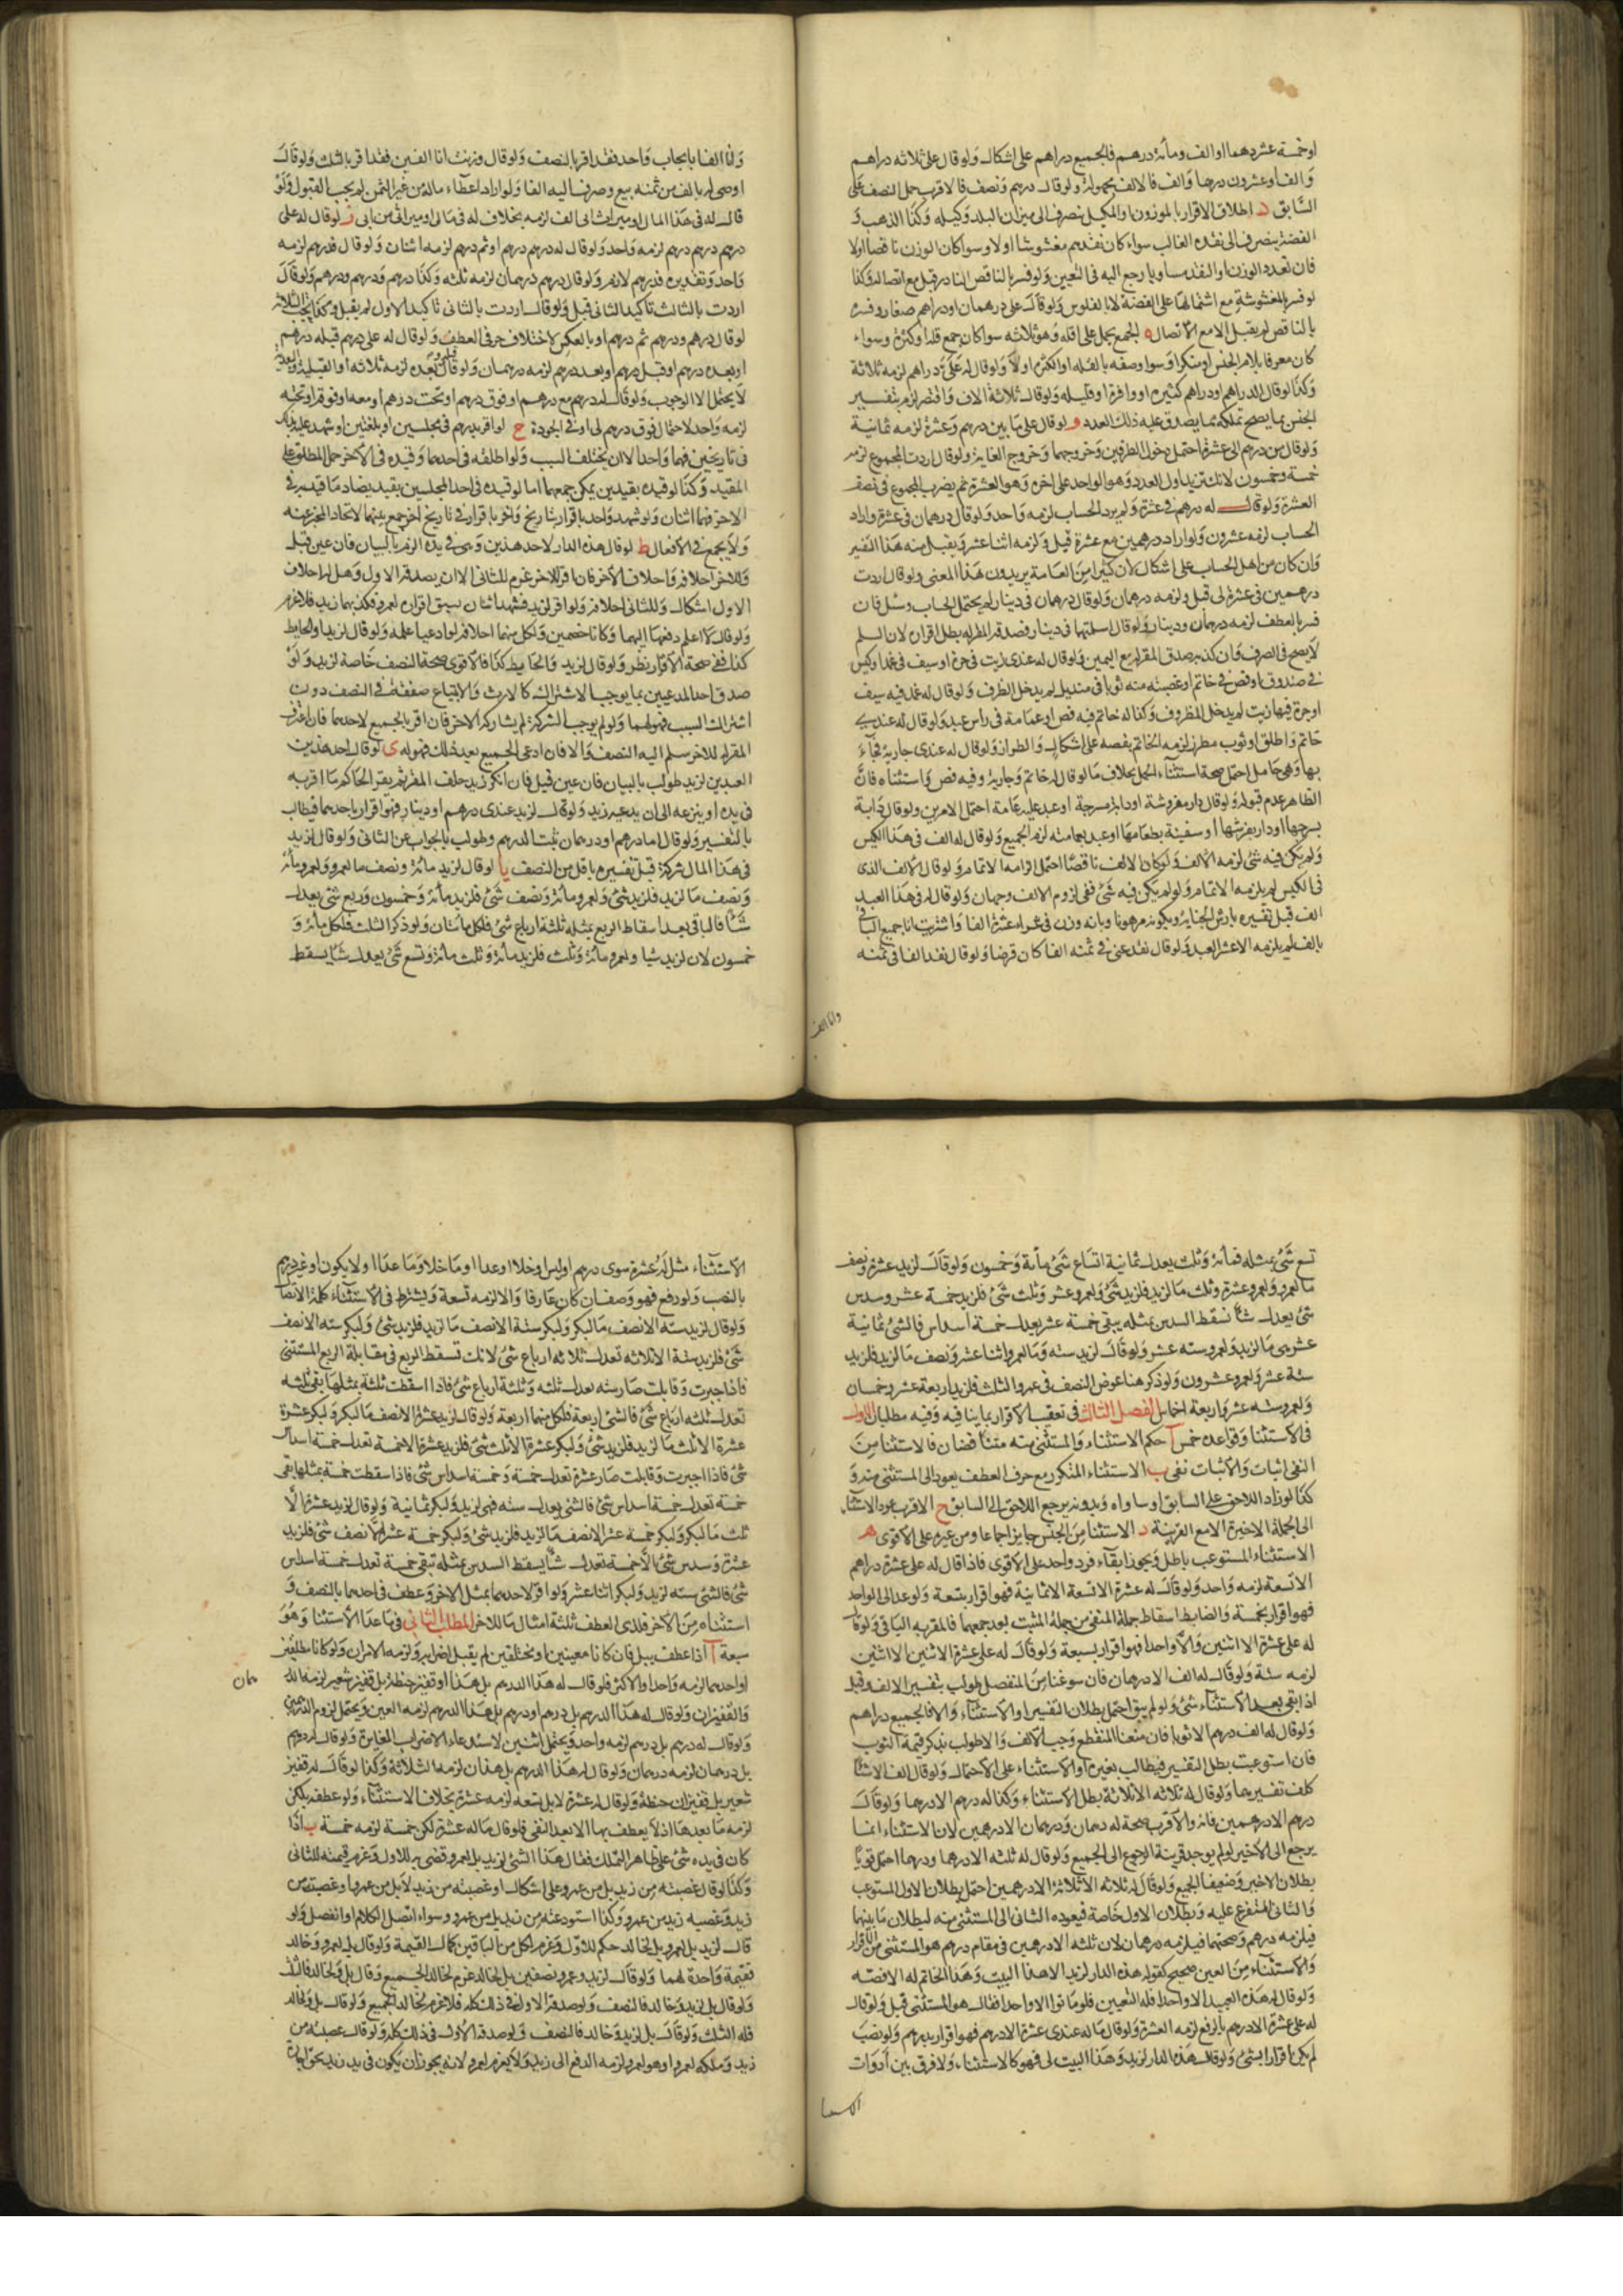 او خمسة عشر درهما او الف ومأة درهم فالجميع دراهم على اشكال ولو قال على ثلاثه دراهم
والف او عشرون درهما والف فالالف مجهولة ولو قال درهم ونصف فالاقرب حمل النصف على
السابق د اطلاق الاقرار بالموزون او المكيل ينصرف الى ميزان البلد وكيله وكذا الذهب و
الفضة ينصرف الى نقده الغالب سواء كان نقدهم مغشوشا اولا وسوا كان الوزن ناقصا اولا
فان تعدد الوزن او النقد متساويا رجع اليه فى التعيين ولو فسر بالناقص النادر قبل مع اتصاله وكذا
لو فسر بالمغشوشة مع اشتمالها على الفضة لا بالفلوس ولو قال على درهمان او دراهم صغار وفسره
بالناقص لم يقبل الا مع الاتصال ه الجمع يحمل على اقله وهو ثلاثه سوا كان جمع قلة او كثرة وسواء
كان معرفا بلام الجنس او منكرا وسوا وصفه بالقله او الكثرة اولا ولو قال له على دراهم لزمه ثلاثة
وكذا لو قال الدراهم او دراهم كثيره او وافرة او قليله ولو قال ثلاثة الاف واقتصر لزم بتفسير
الجنس بما يصح تملكه مما يصدق عليه ذلك العدد و لو قال على ما بين درهم وعشرة لزمه ثمانية
ولو قال من درهم الى عشرة احتمل دخول الطرفين وخروجهما وخروج الغاية ولو قال اردت المجموع لزمه
خمسة وخمسون لانك تزيد اول العدد وهو الواحد على اخره وهو العشرة ثم يضرب المجموع فى نصف
العشرة ولو قال له درهم فى عشرة ولم يرد الحساب لزمه واحد ولو قال درهمان فى عشرة واراد
الحساب لزمه عشرون ولو اراد درهمين مع عشرة قبل ولزمه اثنا عشر ويقبل منه هذا التفسير
وان كان من اهل الحساب على اشكال لان كثيرا من العامة يريدون هذا المعنى ولو قال اردت
درهمين فى عشرة لى قبل ولزمه درهمان ولو قال درهمان فى دينار لم يحتمل الحساب وسئل فان
فسر بالعطف لزمه درهمان ودينار ولو قال اسلمتهما فى دينار فصدقه المقر له بطل اقراره لان السلم
لا يصح فى الصرف وان كذبه صدق المقر له مع اليمين ولو قال له عندى زيت فى جرة او سيف فى غمد او كيس
فى صندوق او فص فى خاتم او غصبته منه ثوبا فى منديل لم يدخل الظرف ولو قال له غمد فيه سيف
او جرة فيها زيت لم يدخل المظروف وكذا له خاتم فيه فص او عمامة فى راس عبد ولو قال له عندى
خاتم واطلق او ثوب مطرز لزمه الخاتم بفصه على اشكال والطراز ولو قال له عندى جارية فجآء
بها وهى حامل احتمل صحة استثناء الحمل بخلاف ما لو قال له خاتم وجارية وفيه فص واستثناه فان
الظاهر عدم قبوله ولو قال دار مفروشة او دابة مسرجة او عبد عليه عمامة احتمل الامرين ولو قال دابة
بسرجها او دار بفرشها او سفينة بطعامها او عبد بعمامته لزم الجميع ولو قال له الف فى هذا الكيس
ولم يكن فيه شئ لزمه الالف ولو كان الالف ناقصا احتمل الزامه الاتمام ولو قال الالف الذى
فى الكيس لم يلزمه الاتمام ولو لم يكن فيه شئ ففى لزوم الالف وجهان ولو قال له فى هذا العبد
الف قبل تفسيره بارش الجناية وبكونه مرهونا وبانه وزن فى شراء عشره الفا واشتريت انا جميع الباقى
بالف لم يلزمه الا عشر العبد ولو قال نقد عنى فى ثمنه الفا كان قرضا ولو قال نقد الفا فى ثمنه
وانا الف
وانا الفا بايجاب واحد فقد اقر بالنصف ولو قال وزنت انا الفين فقد اقر بالثلث ولو قال
اوصى له بالف من ثمنه بيع وصرف اليه الفا ولو اراد اعطآء ماله من غير الثمن لم يجب القبول ولو
قال له فى هذا المال او ميراث ابى الف لزمه بخلاف له فى مالى او ميراثى من ابى ز لو قال له على
درهم درهم درهم لزمه واحد ولو قال له درهم درهم او ثم درهم لزمه اثنان ولو قال فدرهم لزمه
واحد وتقديره فدرهم لازم ولو قال درهم درهمان لزمه ثلثه وكذا درهم ودرهم ودرهم ولو قال
اردت بالثالث تاكيد الثانى قبل ولو قال اردت بالثانى تاكيد الاول لم يقبل وكذا يجب الثلاثة
لو قال درهم ودرهم ثم درهم او بالعكس لاختلاف حرفى العطف ولو قال له على درهم قبله درهم
او بعده درهم او قبل درهم او بعد درهم لزمه درهمان ولو قال قبله وبعده لزمه ثلاثه اذ القبلية والبعدية
لا يحتمل الا الوجوب ولو قال له درهم مع درهم او فوق درهم او تحت درهم او معه او فوقه او تحته
لزمه واحد لاحتمال فوق درهم لى او فى الجودة ح لو اقر بدرهم فى مجلسين او بلغتين او شهد عليه بذلك
فى تاريخين فهما واحد الا ان يختلف السبب ولو اطلقه فى احدهما وقيده فى الاخر حمل المطلق على
المقيد وكذا لو قيده بقيدين يمكن جمعهما اما لو قيده فى احد المجلسين بقيد يضاد ما قيده به فى
الاخر فهما اثنان ولو شهد واحد باقرار بتاريخ واخر باقرار فى تاريخ اخر جمع بينهما لاتحاد المخبر عنه
ولا يجمع فى الافعال ط لو قال هذه الدار لاحد هذين وهى فى يده الزم بالبيان فان عين قبل
وللاخر احلافه واحلاف الاخر فان اقر للاخر غرم للثانى الا ان يصدقه الاول وهل له احلاف
الاول اشكال وللثانى احلافه ولو اقر لزيد فشهد اثنان بسبق اقراره لعمرو فكذبهما زيد فلا غرم
ولو قال لا اعلم دفعها اليهما وكانا خصمين ولكل منهما احلافه لو ادعيا علمه ولو قال لزيد او الحايط
كذا ففى صحة الاقرار نظر ولو قال لزيد والحايط كذا فالاقوى صحة النصف خاصة لزيد ولو
صدق احد المدعيين بما يوجب الاشتراك كالارث والابتياع صفقة فى النصف دون
اشتراك السبب فهو لهما ولو لم يوجب الشركة لم يشاركه الاخر فان اقر بالجميع لاحدهما فان اعترف
المقر له للاخر سلم اليه النصف والا فان ادعى الجميع بعد ذلك فهو له ى لو قال احد هذين
العبدين لزيد طولب بالبيان فان عين قبل فان انكر زيد حلف المقر ثم يقر الحاكم ما اقر به
فى يده او ينزعه الى ان يدعيه زيد ولو قال لزيد عندى درهم او دينار فهو اقرار باحدهما فيطالب
بالتفسير ولو قال اما درهم او درهمان ثبت الدرهم وطولب بالجواب عن الثانى ولو قال لزيد
فى هذا المال شركة قبل تفسيره باقل من النصف يا لو قال لزيد مائة ونصف ما لعمرو ولعمرو مائة
ونصف ما لزيد فلزيد شئ ولعمرو مائة ونصف شئ فلزيد مأة وخمسون وربع شئ يعدل
شئا فالباقى بعد اسقاط الربع بمثله ثلثة ارباع شئ فلكل مأتان ولو ذكر الثلث فلكل مائة و
خمسون لان لزيد شيا ولعمرو مائة وثلث فلزيد مأة وثلث مائة وتسع شئ يعدل شئا يسقط
تسع شئ بمثله فمأة وثلث يعدل ثمانية اتساع شئ مأة وخمسون ولو قال لزيد عشرة ونصف
ما لعمرو ولعمرو عشرة وثلث ما لزيد فلزيد شئ ولعمرو عشر وثلث شئ فلزيد خمسة عشر وسدس
شئ يعدل شئا نسقط السدس بمثله يبقى خمسة عشر يعدل خمسة اسداس فالشئ ثمانية
عشر هى ما لزيد ولعمرو سته عشر ولو قال لزيد سته وما لعمرو اثنا عشر ونصف ما لزيد فلزيد
ستة عشر ولعمرو عشرون ولو ذكر هنا عوض النصف فى عمرو الثلث فلزيد اربعة عشر وخمسان
ولعمرو سته عشر واربعة اخماس الفصل الثالث فى تعقيب الاقرار بما ينافيه وفيه مطلبان الاول
فى الاستثنا وقواعده خمس آ حكم الاستثناء والمستثنى منه متناقضان فالاستثنا من
النفى اثبات والاثبات نفى ب الاستثناء المتكرر مع حرف العطف يعود الى المستثنى منه و
كذا لو زاد اللاحق على السابق او ساواه وبدونه يرجع اللاحق الى السابق ج الاقرب عود الاستثناء
الى الجملة الاخيرة الا مع القرينة د الاستثنا من الجنس جايز اجماعا ومن غيره على الاقوى ه
الاستثناء المستوعب باطل ويجوز ابقآء فرد واحد على الاقوى فاذا قال له على عشرة دراهم
الا تسعة لزمه واحد ولو قال له عشرة الا تسعة الا ثمانية فهو اقرار بتسعة ولو عد الى الواحد
فهو اقرار بخمسة والضابط اسقاط جملة المنفى من جملة المثبت بعد جمعهما فالمقر به الباقى ولو قال
له على عشرة الا اثنين والا واحدا فهو اقرار بسبعة ولو قال له على عشرة الا اثنين الا اثنين
لزمه ستة ولو قال له الف الا درهمان فان سوغنا من المنفصل طولب بتفسير الالف وقبل
اذا بقى بعد الاستثناء شئ ولو لم يبق احتمل بطلان التفسير او الاستثناء والا فالجميع دراهم
ولو قال له الف درهم الا ثوبا فان منعنا المنقطع وجب الالف والا طولب بذكر قيمة الثوب
فان استوعبت بطل التفسير فيطالب بغيره او الاستثناء على الاحتمال ولو قال الف الا شئا
كلف تفسيرهما ولو قال له ثلاثه الا ثلاثة بطل الاستثناء وكذا له درهم الا درهما ولو قال
درهم الا درهمين فانه والاقرب صحة له درهمان ودرهمان الا درهمين لان الاستثناء انما
يرجع الى الاخير لو لم يوجد قرينة الرجوع الى الجميع ولو قال له ثلثه الا درهما ودرهما احتمل قويا
بطلان الاخير وضعيفا الجميع ولو قال له ثلاثه الا ثلاثة الا درهمين احتمل بطلان الاول المستوعب
والثانى المتفرع عليه وبطلان الاول خاصة فيعوده الثانى الى المستثنى منه لبطلان ما بينهما
فيلزمه درهم وصحتهما فيلزمه درهمان لان ثلثه الا درهمين فى مقام درهم هو المستثنى من الاقرار
والاستثناء من العين صحيح كقوله هذه الدار لزيد الا هذا البيت وهذا الخاتم له الا فصه
ولو قال له هذه العبيد الا واحدا فله التعيين فلو ماتوا الا واحدا فقال هو المستثنى قبل ولو قال
له على عشرة الا درهم بالرفع لزمه العشرة ولو قال ما له عندى عشرة الا درهم فهو اقرار بدرهم ولو نصب
لم يكن اقرارا بشئ ولو قال هذه الدار لزيد وهذا البيت لى فهو كالاستثناء ولا فرق بين ادوات
الاستثناء مثل له عشرة سوى درهم او ليس او خلا او عدا او ما خلا وما عدا او لا يكون او غير درهم
بالنصب ولو رفع فهو وصف ان كان عارفا والا لزمه تسعة ويشترط فى الاستثناء كله الاتصال
ولو قال لزيد سته الا نصف ما لبكر ولبكر ستة الا نصف ما لزيد فلزيد شئ ولبكر سته الا نصف
شئ فلزيد ستة الا ثلاثه تعدل ثلاثه ارباع شئ لانك تسقط الربع فى مقابلة الربع المستثنى
فاذا جبرت وقابلت صار سته يعدل ثلثه وثلثة ارباع شئ فاذا اسقطت ثلثة بمثلها بقى ثلثه
تعدل ثلثه ارباع شئ فالشئ اربعة فلكل منهما اربعة ولو قال لزيد عشرة الا نصف ما لبكر ولبكر عشرة
عشرة الا ثلث ما لزيد فلزيد شئ ولبكر عشرة الا ثلث شئ فلزيد عشرة الا خمسة تعدل خمسة اسداس
شئ فاذا اجبرت وقابلت صار عشرة تعدل خمسة وخمسة اسداس شئ فاذا سقطت خمسة بمثلها بقى
خمسة تعدل خمسة اسداس شئ فالشئ يعدل سته فهى لزيد ولبكر ثمانية ولو قال لزيد عشرة الا
ثلث ما لبكر ولبكر خمسة عشر الا نصف ما لزيد فلزيد شئ ولبكر خمسة عشر الا نصف شئ فلزيد
عشرة وسدس شئ الا خمسة تعدل شئا يسقط السدس بمثله تبقى خمسة تعدل خمسة اسداس
شئ فالشئ سته لزيد ولبكر اثنا عشر ولو اقر لاحدهما بمثل الاخر وعطف فى احدهما بالنصف و
استثناه من الاخر فلذى العطف ثلثة امثال ما للاخر المطلب الثانى فيما عدا الاستثنا وهو
سبعة آ اذا عطف ببل فان كانا معينين او مختلفين لم يقبل اضرابه ولزمه الامران ولو كانا مطلقين
او احدهما لزمه واحد او الاكثر فلو قال له هذا الدرهم بل هذا او قفيز حنطة بل قفيز شعير لزمه الدر
همان
والقفيزان ولو قال له هذا الدرهم بل درهم او درهم بل هذا الدرهم لزمه العين ويحتمل لزوم الدرهمين
ولو قال له درهم بل درهم لزمه واحد ويحتمل اثنين لاستدعاء الاضراب المغايرة ولو قال له درهم
بل درهمان لزمه درهمان ولو قال له هذا الدرهم بل هذان لزمه الثلاثة وكذا لو قال له قفيز
شعير بل قفيزان حنطة ولو قال له عشرة لا بل تسعه لزمه عشرة بخلاف الاستثناء ولو عطف بلكن
لزمه ما بعدها اذ لا يعطف بها الا بعد النفى فلو قال ما له عشرة لكن خمسة لزمه خمسة ب اذا
كان فى يده شئ على ظاهر التملك فقال هذا الشئ لزيد بل لعمرو قضى به للاول وغرم قيمته للثانى
وكذا لو قال غصبته من زيد بل من عمرو على اشكال او غصبته من زيد لا بل من عمرو او غصبته من
زيد وغصبه زيد من عمرو وكذا استودعته من زيد بل من عمرو وسواء اتصل الكلام او انفصل ولو
قال لزيد بل لعمرو بل لخالد حكم للاول وغرم لكل من الباقين كمال القيمة ولو قال بل لعمرو وخالد
فقيمة واحدة لهما ولو قال لزيد وعمرو نصفين بل لخالد غرم لخالد الجميع وقال بل ولخالد فالثلث
ولو قال بل لزيد وخالد فالنصف ولو صدقه الاول فى ذلك كله فلا غرم لخالد الجميع ولو قال بل ولخالد
فله الثلث ولو قال بل لزيد وخالد فالنصف ولو صدقه الاول فى ذلك كله ولو قال غصبته من
زيد وملكه لعمرو او هو لعمرو لزمه الدفع الى زيد ولا يغرم لعمرو لانه يجوز ان يكون فى يد زيد بحق اجارة